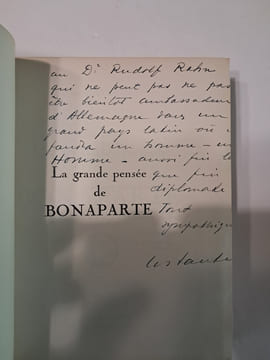 au Dr Rudolf Rahn
qui ne peut pas ne pas
être bientôt ambassadeur
d'Allemagne dans un
grand pays latin où
faudra un homme - un
Homme - aussi fin
que fin
diplomate
La grande pensée
de
BONAPARTE
Tout
sympathique